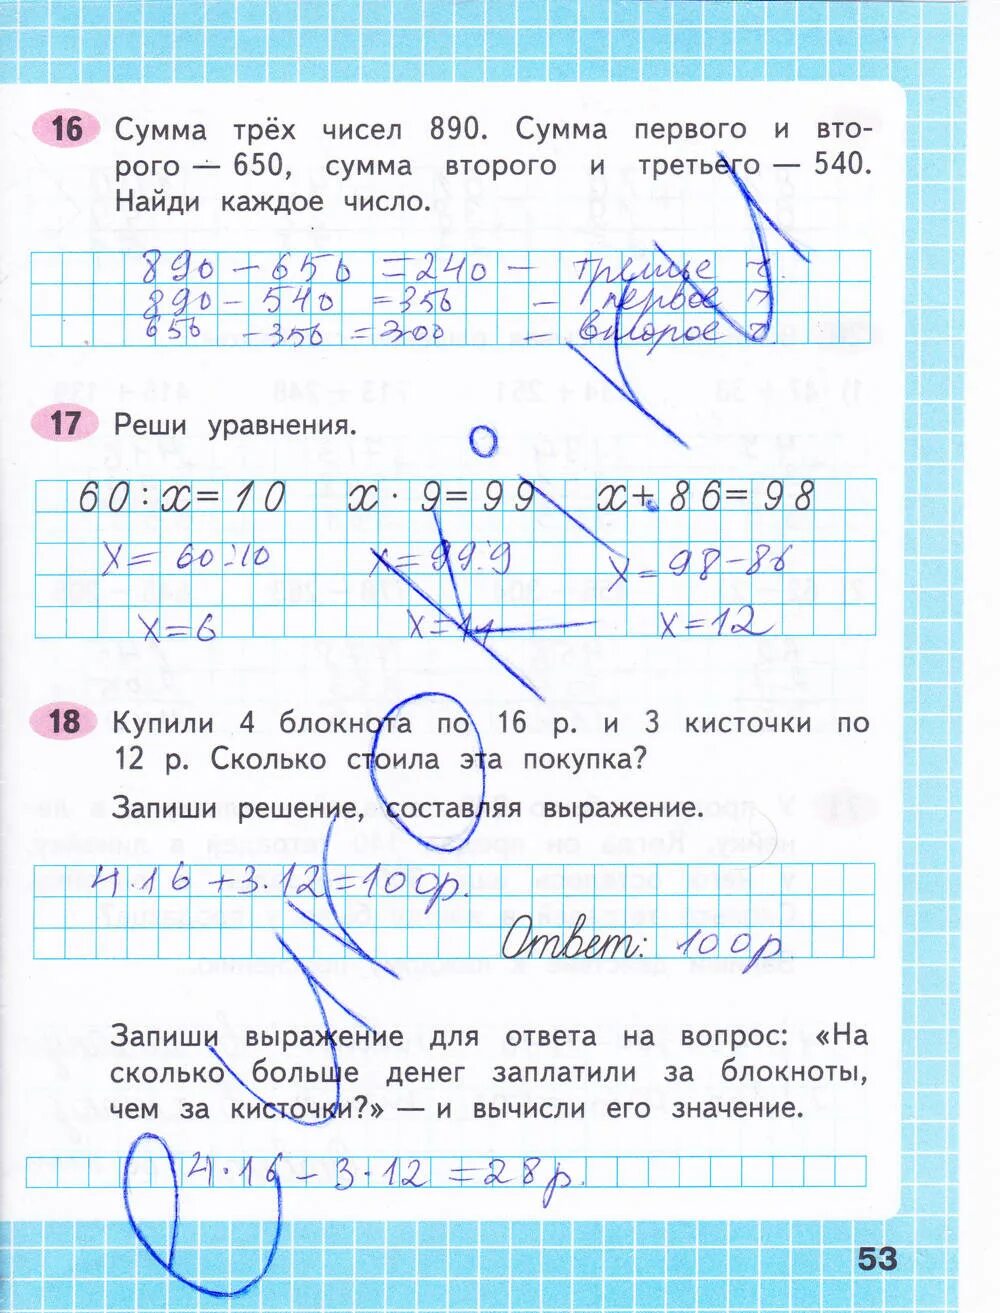 16 Сумма трёх чисел 890. Сумма первого и вто-
рого — 650, сумма второго и третьего — 540.
Найди каждое число.
890 – 650 = 240 – третье ч.
890 – 540 = 350 – первое ч
650 – 350 = 300 – второе ч.
17 Реши уравнения.
60 : x = 10 x · 9 = 99 x + 86 = 98
x = 60 : 10 x = 99 : 9 x = 98 – 86
x = 6 x = 11 x = 12
18 Купили 4 блокнота по 16 р. и 3 кисточки по
12 р. Сколько стоила эта покупка?
Запиши решение, составляя выражение.
4 · 16 + 3 · 12 = 100 р.
Ответ: 100 р
Запиши выражение для ответа на вопрос: «На
сколько больше денег заплатили за блокноты,
чем за кисточки?» — и вычисли его значение.
4 · 16 – 3 · 12 = 28 р.
53